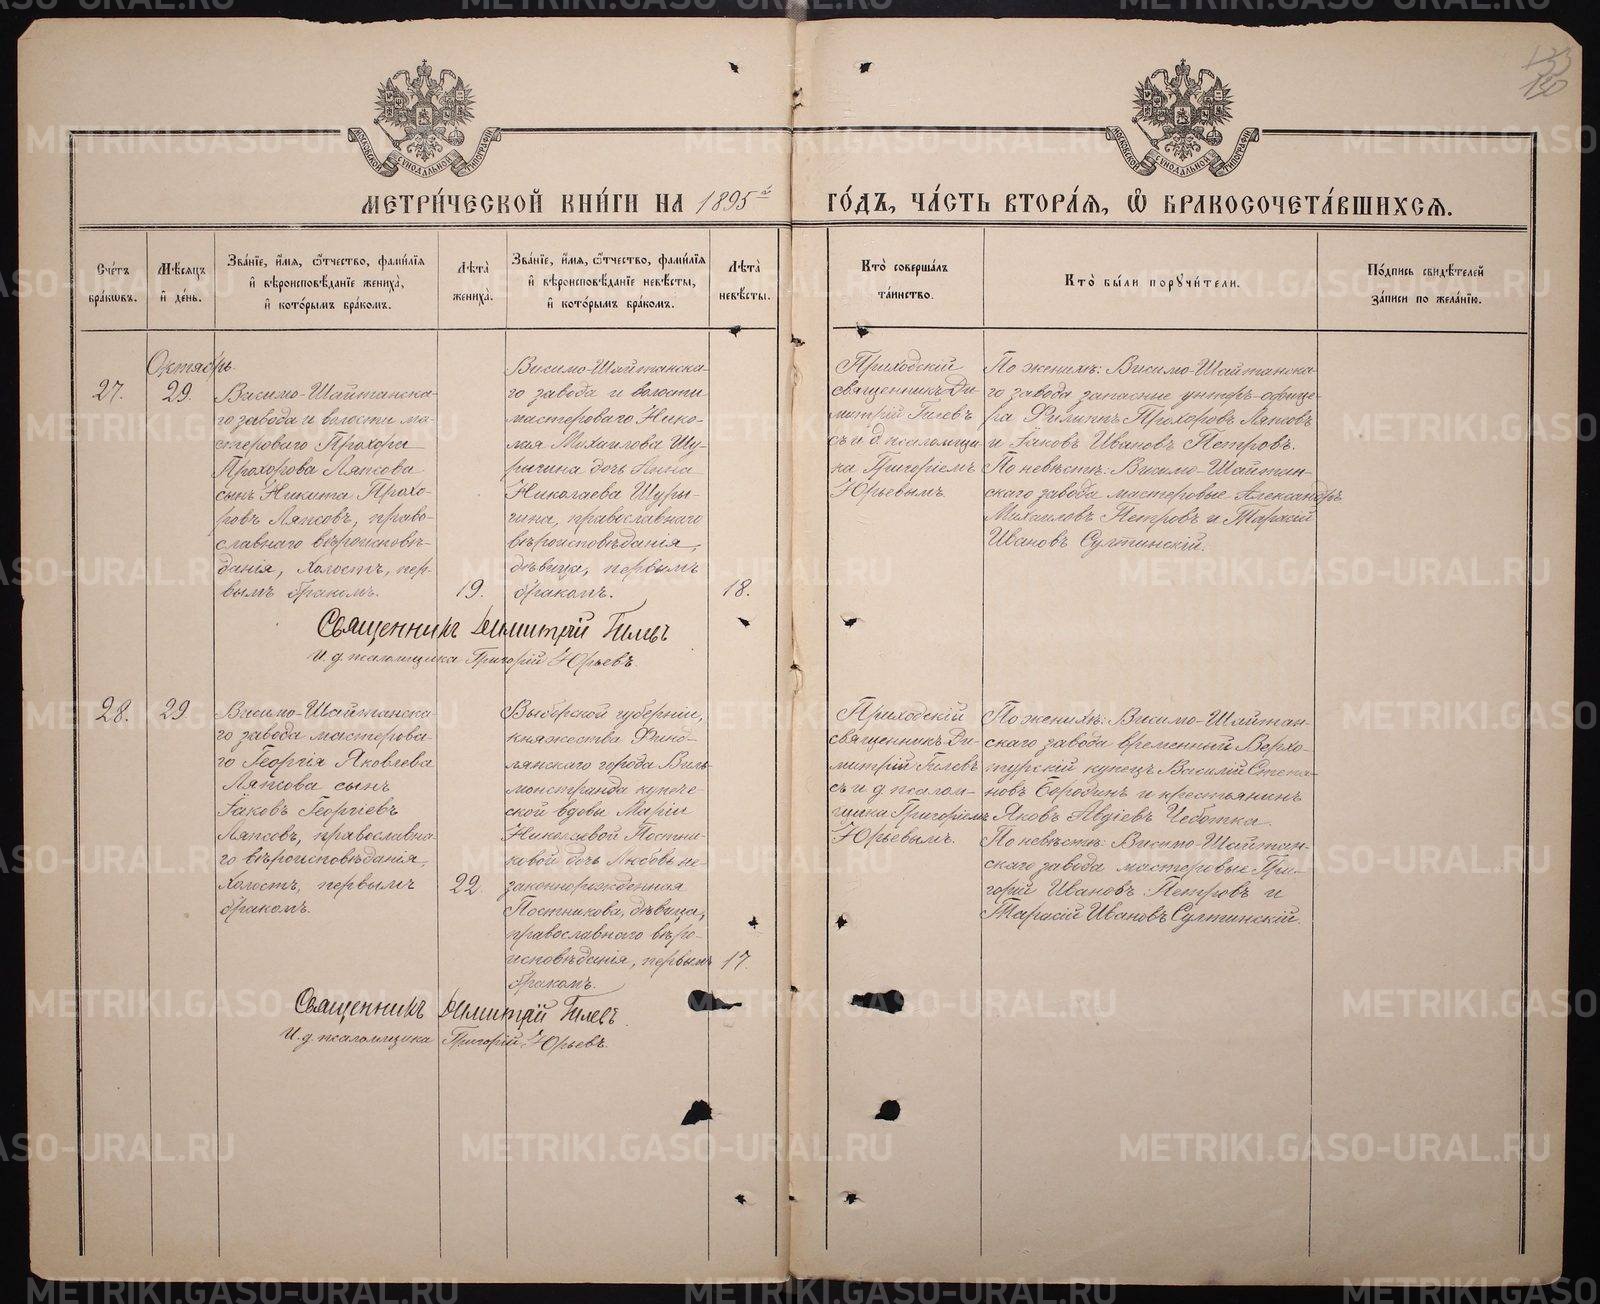 МЕТРИ́ЧЕСКОЙ КНИ́ГИ НА 1895й ГО́ДЪ, ЧА́СТЬ ВТОРА́Я, Ѡ БРАКОСОЧЕТА́ВШИХСЯ.
МОСКОВСКОЙ СУНОДАЛЬНОЙ ТИПОГРАФІИ
МОСКОВСКОЙ СУНОДАЛЬНОЙ ТИПОГРАФІИ
130
Сче́тъ
бра́ковъ.
Мѣ́сяцъ
и де́нь.
Зва́нїе, и́мя, ѻ́тчество, фами́лїя
и вѣроисповѣ́данїе жениха̀,
и кото́рымъ бра́комъ.
Лѣта̀
жениха̀.
Зва́нїе, и́мя, ѻ́тчество, фами́лїя
и вѣроисповѣ́данїе невѣ́сты,
и кото́рымъ бра́комъ.
Лѣта̀
невѣ́сты.
Кто̀ соверша́лъ
та́инство.
Кто̀ бы́ли порꙋчи́тели.
По́дпись свидѣ́телей
за́писи по жела́нїю.
Октябрь
27.
29.
Висимо-Шайтанска-
го завода и волости ма-
стероваго Прохора
Прохорова Ляпсова
сынъ Никита Прохо-
ровъ Ляпсовъ, право-
славнаго вѣроисповѣ-
данія, холостъ, пер-
вымъ бракомъ.
19.
Висимо-Шайтанска-
го завода и волости
мастероваго Нико-
лая Михаилова Шу-
рыгина дочь Анна
Николаева Шуры-
гина, православнаго
вѣроисповѣданія,
дѣвица, первымъ
бракомъ.
18.
Приходскій
священникъ Ди-
митрій Гилевъ
съ и д псаломщи
ка Григоріемъ
Юрьевымъ.
По женихѣ: Висимо-Шайтанска-
го завода запасные унтеръ-офице-
ра Филиппъ Прохоровъ Ляпсовъ
и Іаковъ Ивановъ Петровъ.
По невѣстѣ: Висимо-Шайтан-
скаго завода мастеровые Александръ
Михаиловъ Петровъ и Тарасій
Ивановъ Султинскій.
Священникъ Димитрій Гилевъ
И. д. псаломщика Григорій Юрьевъ.
28.
29.
Висимо-Шайтанска-
го завода мастерова-
го Георгія Яковлева
Ляпсова сынъ
Іаковъ Георгіевъ
Ляпсовъ, православна-
го вѣроисповѣданія,
холостъ, первымъ
бракомъ.
22.
Выборской губерніи,
княжества Финд-
лянскаго города Виль-
монстранда купече-
ской вдовы Маріи
Николаевой Постни-
ковой дочь Любовь не-
законнорожденная
Постникова, дѣвица,
православнаго вѣро-
исповѣданія, первымъ
бракомъ.
17.
Приходскій
священникъ Ди-
митрій Гилевъ
съ и д псалом-
щика Григоріемъ
Юрьевымъ.
По женихѣ: Висимо-Шайтан-
скаго завода временный Верхо-
турскій купецъ Василій Степа-
новъ Бородинъ и крестьянинъ
Яковъ Авдіевъ Чеботка.
По невѣстѣ: Висимо-Шайтан-
скаго завода мастеровые Гри-
горій Ивановъ Петровъ и
Тарасій Ивановъ Султинскій.
Священникъ Димитрій Гилевъ
И. д. псаломщика Григорій Юрьевъ.
METRIKI.GASO-URAL.RU